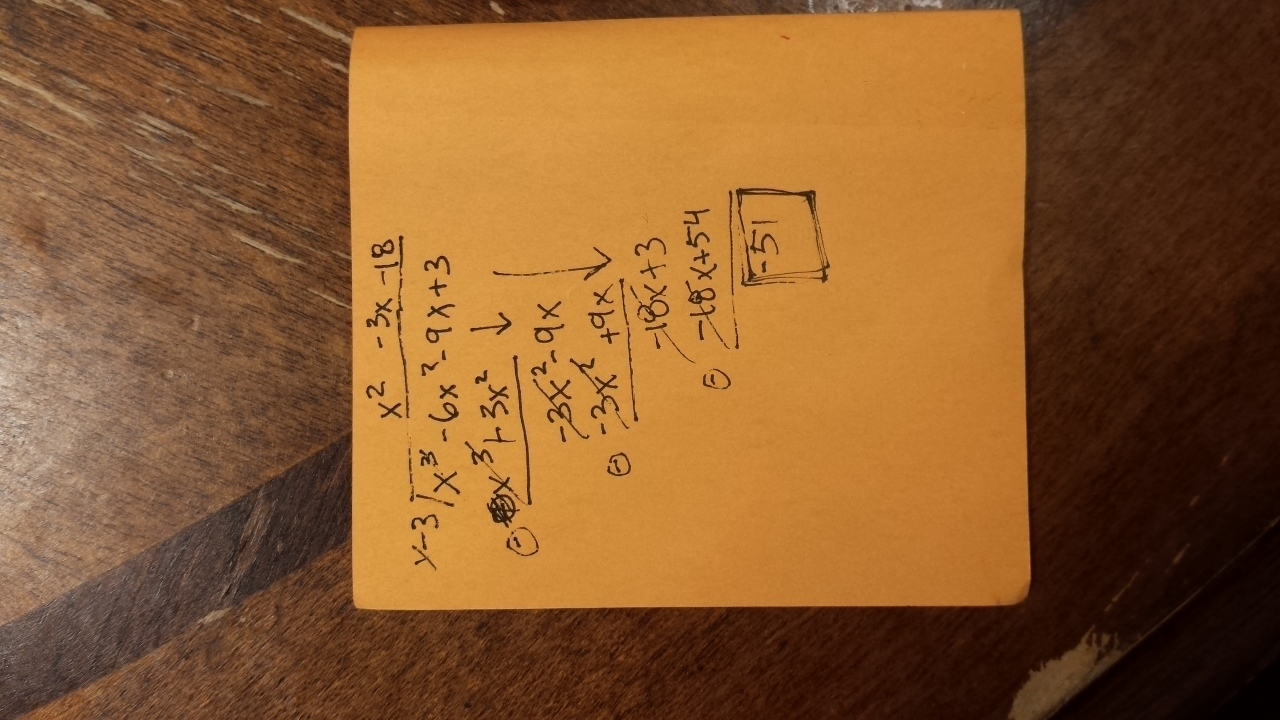 x² -3x -18
x-3 x³ -6x² -9x +3
⊖ x³ + 3x²
-3x² -9x
⊖ -3x² +9x
-18x +3
⊖ -18x +54
-51